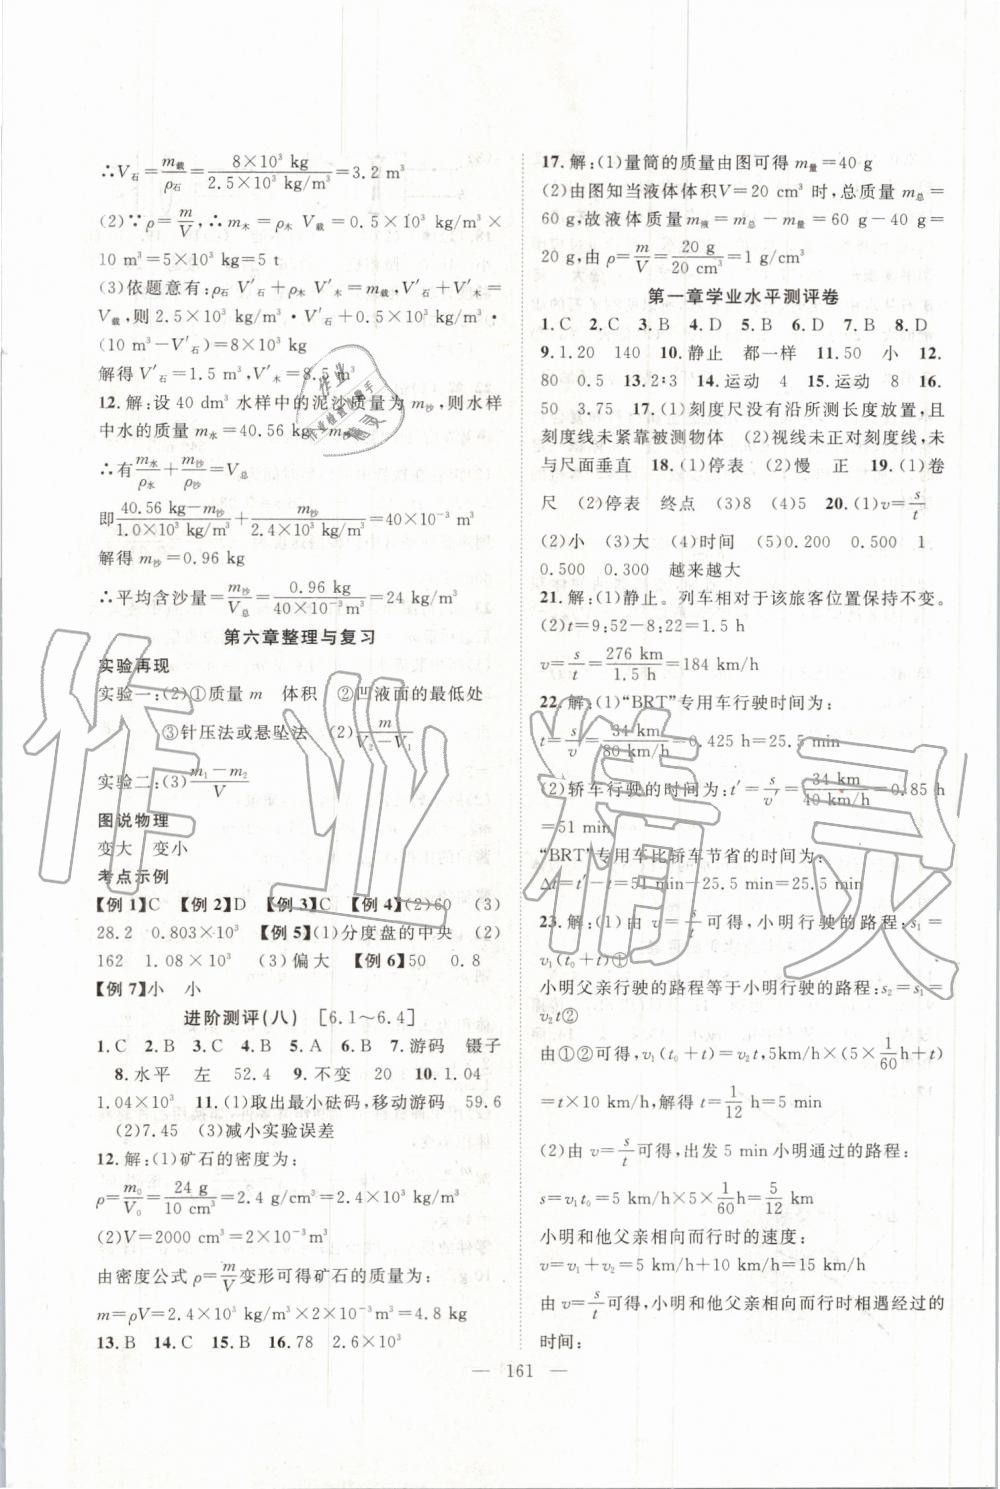 ∴V石=m载/ρ石=8×10³ kg/2.5×10³ kg/m³=3.2 m³
(2)∵ρ=m/V,∴m木=ρ木 V载=0.5×10³ kg/m³×
10 m³=5×10³ kg=5 t
(3)依题意有:ρ石 V′石+ρ木 V′木=m载,V′石+V′木=
V载,则 2.5×10³ kg/m³·V′石+0.5×10³ kg/m³·
(10 m³-V′石)=8×10³ kg
解得 V′石=1.5 m³,V′木=8.5 m³
12.解:设 40 dm³ 水样中的泥沙质量为 m沙,则水样
中水的质量 m水=40.56 kg-m沙
∴有m水/ρ水+m沙/ρ沙=V总
即40.56 kg-m沙/1.0×10³ kg/m³+m沙/2.4×10³ kg/m³=40×10⁻³ m³
解得 m沙=0.96 kg
∴平均含沙量=m沙/V总=0.96 kg/40×10⁻³m³=24 kg/m³
第六章整理与复习
实验再现
实验一:(2)①质量 m 体积 ②凹液面的最低处
③针压法或悬坠法 (2)m/V₂-V₁
实验二:(3)m₁-m₂/V
图说物理
变大 变小
考点示例
【例 1】C 【例 2】D 【例 3】C 【例 4】(2)60 (3)
28.2 0.803×10³ 【例 5】(1)分度盘的中央 (2)
162 1.08×10³ (3)偏大 【例 6】50 0.8
【例 7】小 小
进阶测评(八) [6.1～6.4]
1.C 2.B 3.C 4.B 5.A 6.B 7.游码 镊子
8.水平 左 52.4 9.不变 20 10.1.04
1.04×10³ 11.(1)取出最小砝码,移动游码 59.6
(2)7.45 (3)减小实验误差
12.解:(1)矿石的密度为:
ρ=m₀/V₀=24 g/10 cm³=2.4 g/cm³=2.4×10³ kg/m³
(2)V=2000 cm³=2×10⁻³m³
由密度公式 ρ=m/V变形可得矿石的质量为:
m=ρV=2.4×10³ kg/m³×2×10⁻³m³=4.8 kg
13.B 14.C 15.B 16.78 2.6×10³
17.解:(1)量筒的质量由图可得 m量=40 g
(2)由图知当液体体积V=20 cm³ 时,总质量 m总=
60 g,故液体质量 m液=m总-m量=60 g-40 g=
20 g,由 ρ=m/V=20 g/20 cm³=1 g/cm³
第一章学业水平测评卷
1.C 2.C 3.B 4.D 5.B 6.D 7.B 8.D
9.1.20 140 10.静止 都一样 11.50 小 12.
80 0.5 13.2∶3 14.运动 4 15.运动 8 16.
50 3.75 17.(1)刻度尺没有沿所测长度放置,且
刻度线未紧靠被测物体 (2)视线未正对刻度线,未
与尺面垂直 18.(1)停表 (2)慢 正 19.(1)卷
尺 (2)停表 终点 (3)8 (4)5 20.(1)v=s/t
(2)小 (3)大 (4)时间 (5)0.200 0.500 1
0.500 0.300 越来越大
21.解:(1)静止。列车相对于该旅客位置保持不变。
(2)t=9:52-8:22=1.5 h
v=s/t=276 km/1.5 h=184 km/h
22.解:(1)“BRT”专用车行驶时间为:
t=s/v=34 km/80 km/h=0.425 h=25.5 min
(2)轿车行驶的时间为:t′=s/v′=34 km/40 km/h=0.85 h
=51 min
“BRT”专用车比轿车节省的时间为:
Δt=t′-t=51 min-25.5 min=25.5 min
23.解:(1)由 v=s/t可得,小明行驶的路程:s₁=
v₁(t₀+t)①
小明父亲行驶的路程等于小明行驶的路程:s₂=s₁=
v₂t②
由①②可得,v₁(t₀+t)=v₂t,5km/h×(5×1/60h+t)=
t×10 km/h,解得 t=1/12 h=5 min
(2)由 v=s/t可得,出发 5 min 小明通过的路程:
s=v₁t₀=5 km/h×5×1/60h=5/12 km
小明和他父亲相向而行时的速度:
v=v₁+v₂=5 km/h+10 km/h=15 km/h
由 v=s/t可得,小明和他父亲相向而行时相遇经过的
时间:
— 161 —
作业精灵